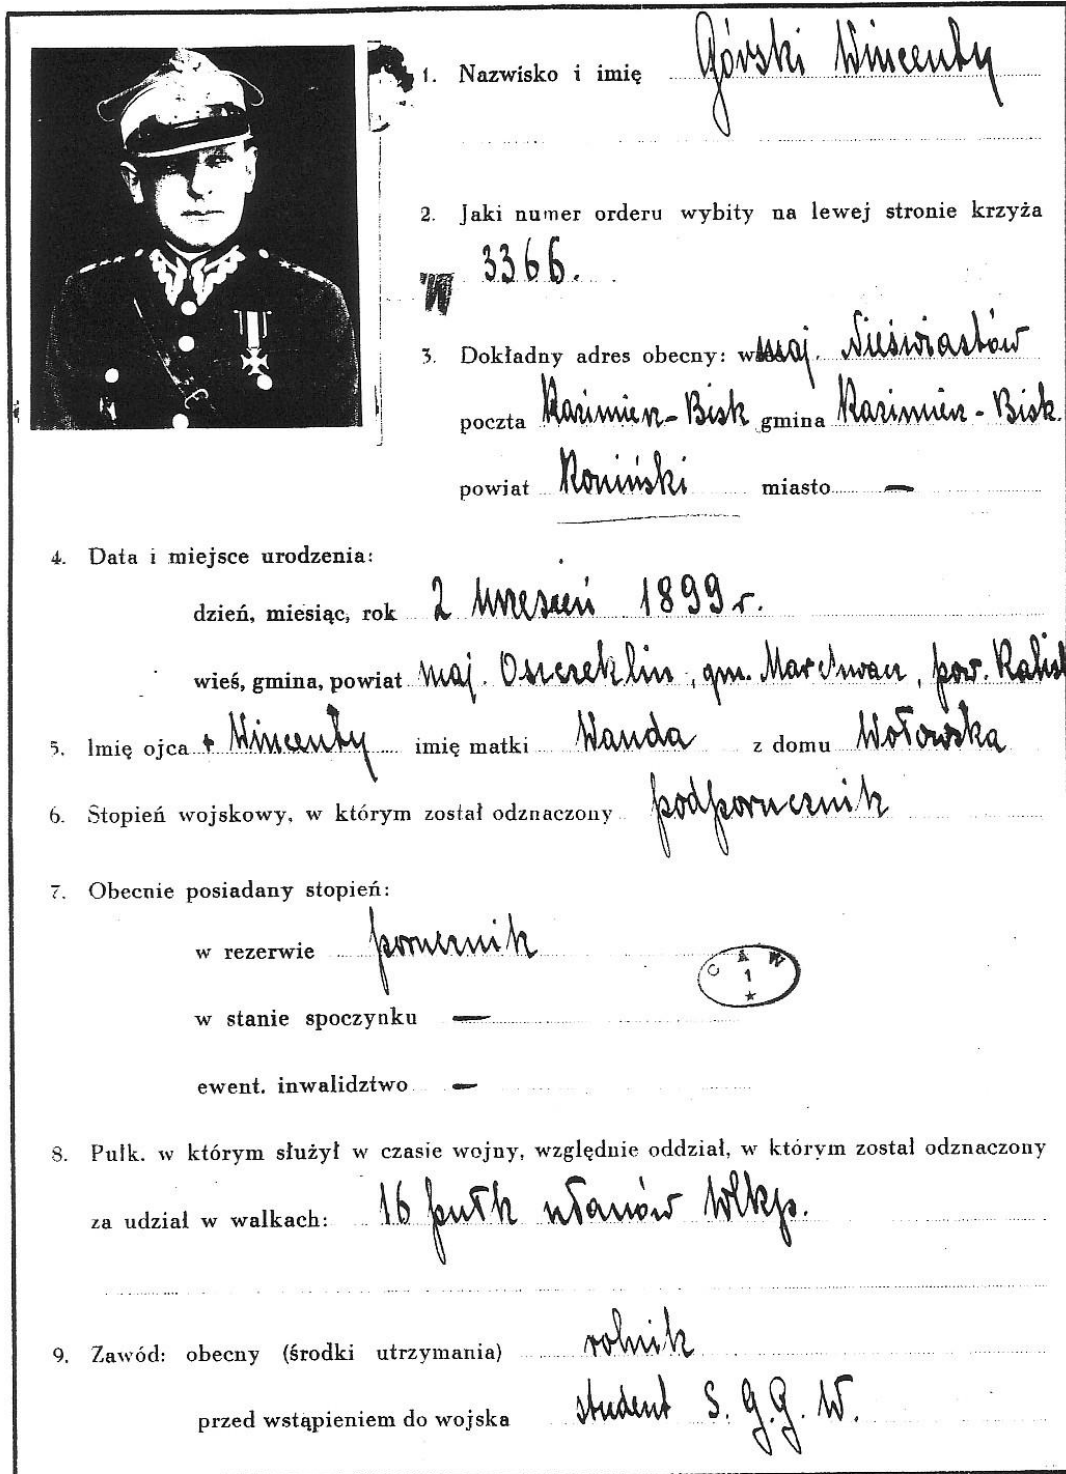 1. Nazwisko i imię Górski Wincenty
2. Jaki numer orderu wybity na lewej stronie krzyża
3366.
3. Dokładny adres obecny: maj. Nieświastów
poczta Kazimierz-Bisk gmina Kazimierz-Bisk.
powiat Koniński miasto —
4. Data i miejsce urodzenia:
dzień, miesiąc, rok 2 wrzesień 1899 r.
wieś, gmina, powiat maj. Oszczeklin, gm. Marchwacz, pow. Kalisk
5. Imię ojca + Wincenty imię matki Wanda z domu Wołowska
6. Stopień wojskowy, w którym został odznaczony podporucznik
7. Obecnie posiadany stopień:
w rezerwie porucznik
C A W
1
w stanie spoczynku —
ewent. inwalidztwo —
8. Pułk. w którym służył w czasie wojny, względnie oddział, w którym został odznaczony
za udział w walkach: 16 pułk ułanów Wlkp.
9. Zawód: obecny (środki utrzymania) rolnik
przed wstąpieniem do wojska student S. G. G. W.